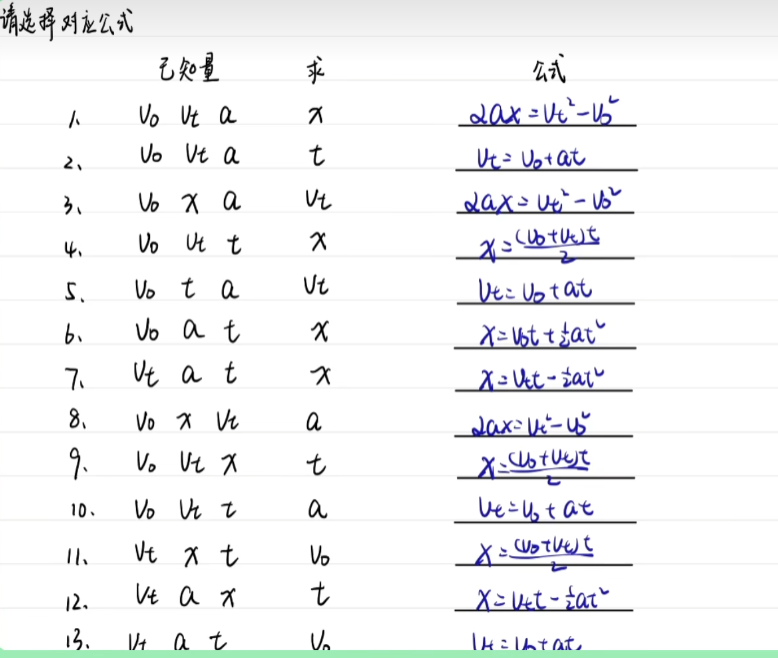 请选择对应公式
已知量 求 公式
1、 V₀ Vt a x 2ax=Vt²-V₀²
2、 V₀ Vt a t Vt=V₀+at
3、 V₀ x a Vt 2ax=Vt²-V₀²
4、 V₀ Vt t x x=(V₀+Vt)t/2
5、 V₀ t a Vt Vt=V₀+at
6、 V₀ a t x x=V₀t+½at²
7、 Vt a t x x=Vtt-½at²
8、 V₀ x Vt a 2ax=Vt²-V₀²
9、 V₀ Vt x t x=(V₀+Vt)t/2
10、 V₀ Vt t a Vt=V₀+at
11、 Vt x t V₀ x=(V₀+Vt)t/2
12、 Vt a x t x=Vtt-½at²
13、 Vt a t V₀ Vt=V₀+at